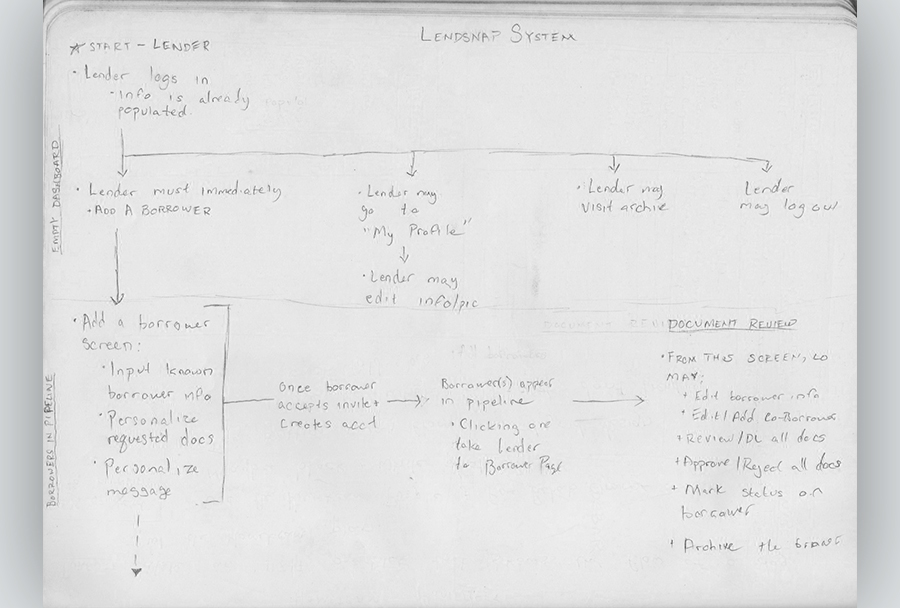 LENDSNAP SYSTEM
START - LENDER
Lender logs in
Info is already
populated.
EMPTY DASHBOARD
Lender must immediately
ADD A BORROWER
Lender may
go to
"My Profile"
Lender may
edit info/pic
Lender may
visit archive
Lender
may log out
BORROWERS IN PIPELINE
Add a borrower
screen:
Input known
borrower info
Personalize
requested docs
Personalize
message
Once borrower
accepts invite +
creates acct
Borrower(s) appear
in pipeline
Clicking one
take lender
to Borrower Page
DOCUMENT REVIEW
FROM THIS SCREEN, LO
MAY:
Edit borrower info
Edit/Add Co-Borrower
Review/DL all docs
Approve/Reject all docs
Mark status on
borrower
Archive the